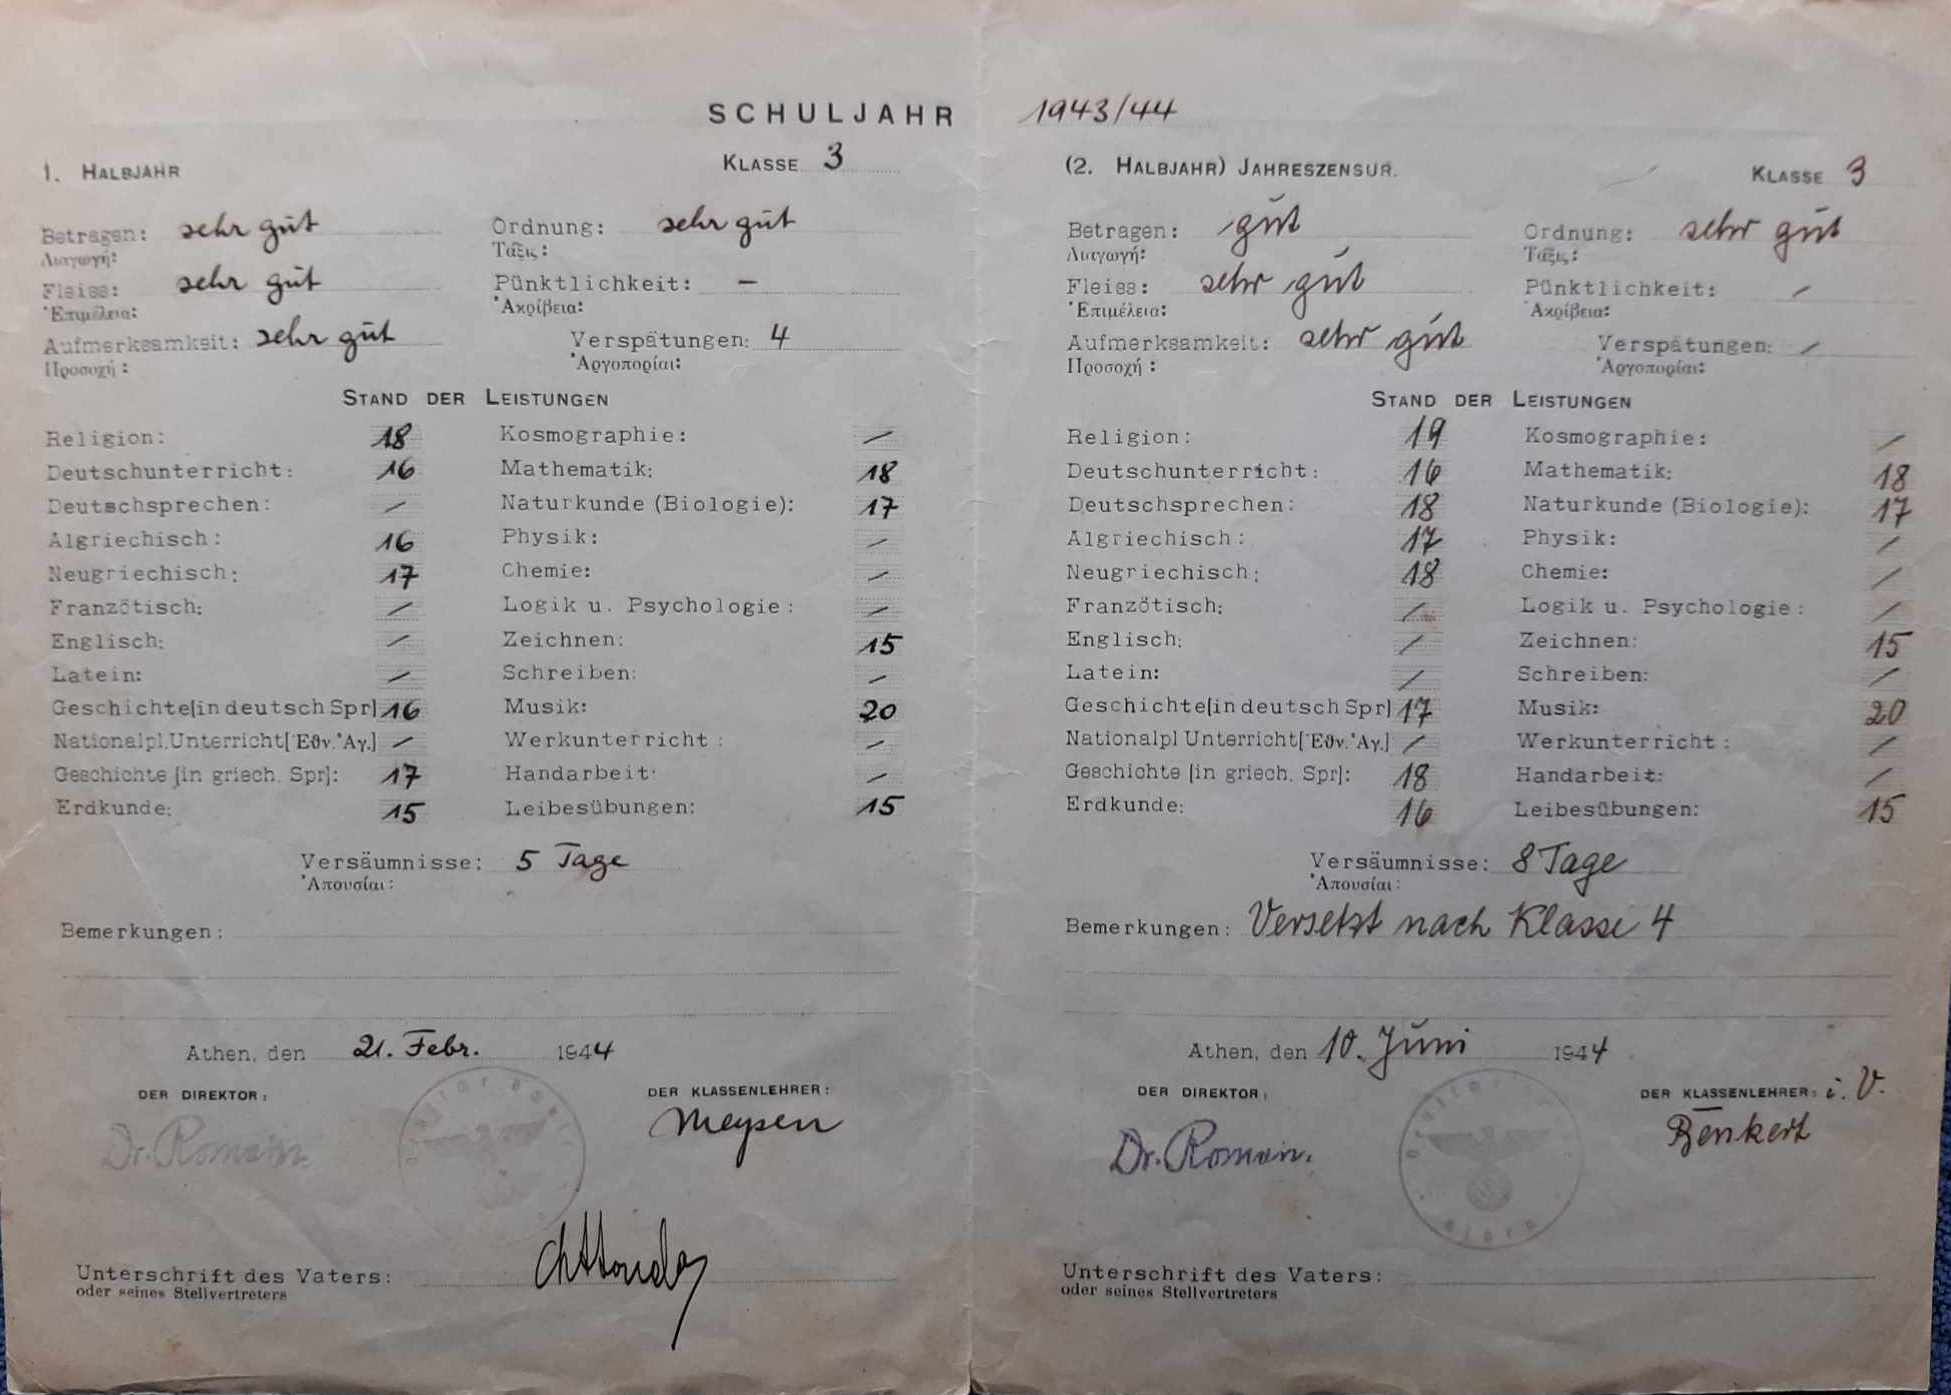 SCHULJAHR 1943/44
1. HALBJAHR KLASSE 3
Betragen: sehr gut Ordnung: sehr gut
Διαγωγή: Τάξις:
Fleiss: sehr gut Pünktlichkeit: –
Ἐπιμέλεια: Ἀκρίβεια:
Aufmerksamkeit: sehr gut Verspätungen: 4
Προσοχή: Ἀργοπορίαι:
STAND DER LEISTUNGEN
Religion: 18 Kosmographie: /
Deutschunterricht: 16 Mathematik: 18
Deutschsprechen: / Naturkunde (Biologie): 17
Algriechisch: 16 Physik: /
Neugriechisch: 17 Chemie: /
Franzötisch: / Logik u. Psychologie: /
Englisch: / Zeichnen: 15
Latein: / Schreiben: /
Geschichte[in deutsch Spr] 16 Musik: 20
Nationalpl.Unterricht[Ἐθν.Ἀγ.] / Werkunterricht: /
Geschichte [in griech. Spr]: 17 Handarbeit: /
Erdkunde: 15 Leibesübungen: 15
Versäumnisse: 5 Tage
Ἀπουσίαι:
Bemerkungen:
Athen, den 21. Febr. 1944
DER DIREKTOR: DER KLASSENLEHRER:
Dr. Roman Meysen
Unterschrift des Vaters:
oder seines Stellvertreters
(2. HALBJAHR) JAHRESZENSUR. KLASSE 3
Betragen: gut Ordnung: sehr gut
Διαγωγή: Τάξις:
Fleiss: sehr gut Pünktlichkeit: /
Ἐπιμέλεια: Ἀκρίβεια:
Aufmerksamkeit: sehr gut Verspätungen: /
Προσοχή: Ἀργοπορίαι:
STAND DER LEISTUNGEN
Religion: 19 Kosmographie: /
Deutschunterricht: 16 Mathematik: 18
Deutschsprechen: 18 Naturkunde (Biologie): 17
Algriechisch: 17 Physik: /
Neugriechisch: 18 Chemie: /
Franzötisch: / Logik u. Psychologie: /
Englisch: / Zeichnen: 15
Latein: / Schreiben: /
Geschichte[in deutsch Spr] 17 Musik: 20
Nationalpl Unterricht[Ἐθν.Ἀγ.] / Werkunterricht: /
Geschichte [in griech. Spr]: 18 Handarbeit: /
Erdkunde: 16 Leibesübungen: 15
Versäumnisse: 8 Tage
Ἀπουσίαι:
Bemerkungen: Versetzt nach Klasse 4
Athen, den 10. Juni 1944
DER DIREKTOR: DER KLASSENLEHRER: i. V.
Dr. Roman. Benkert
Unterschrift des Vaters:
oder seines Stellvertreters